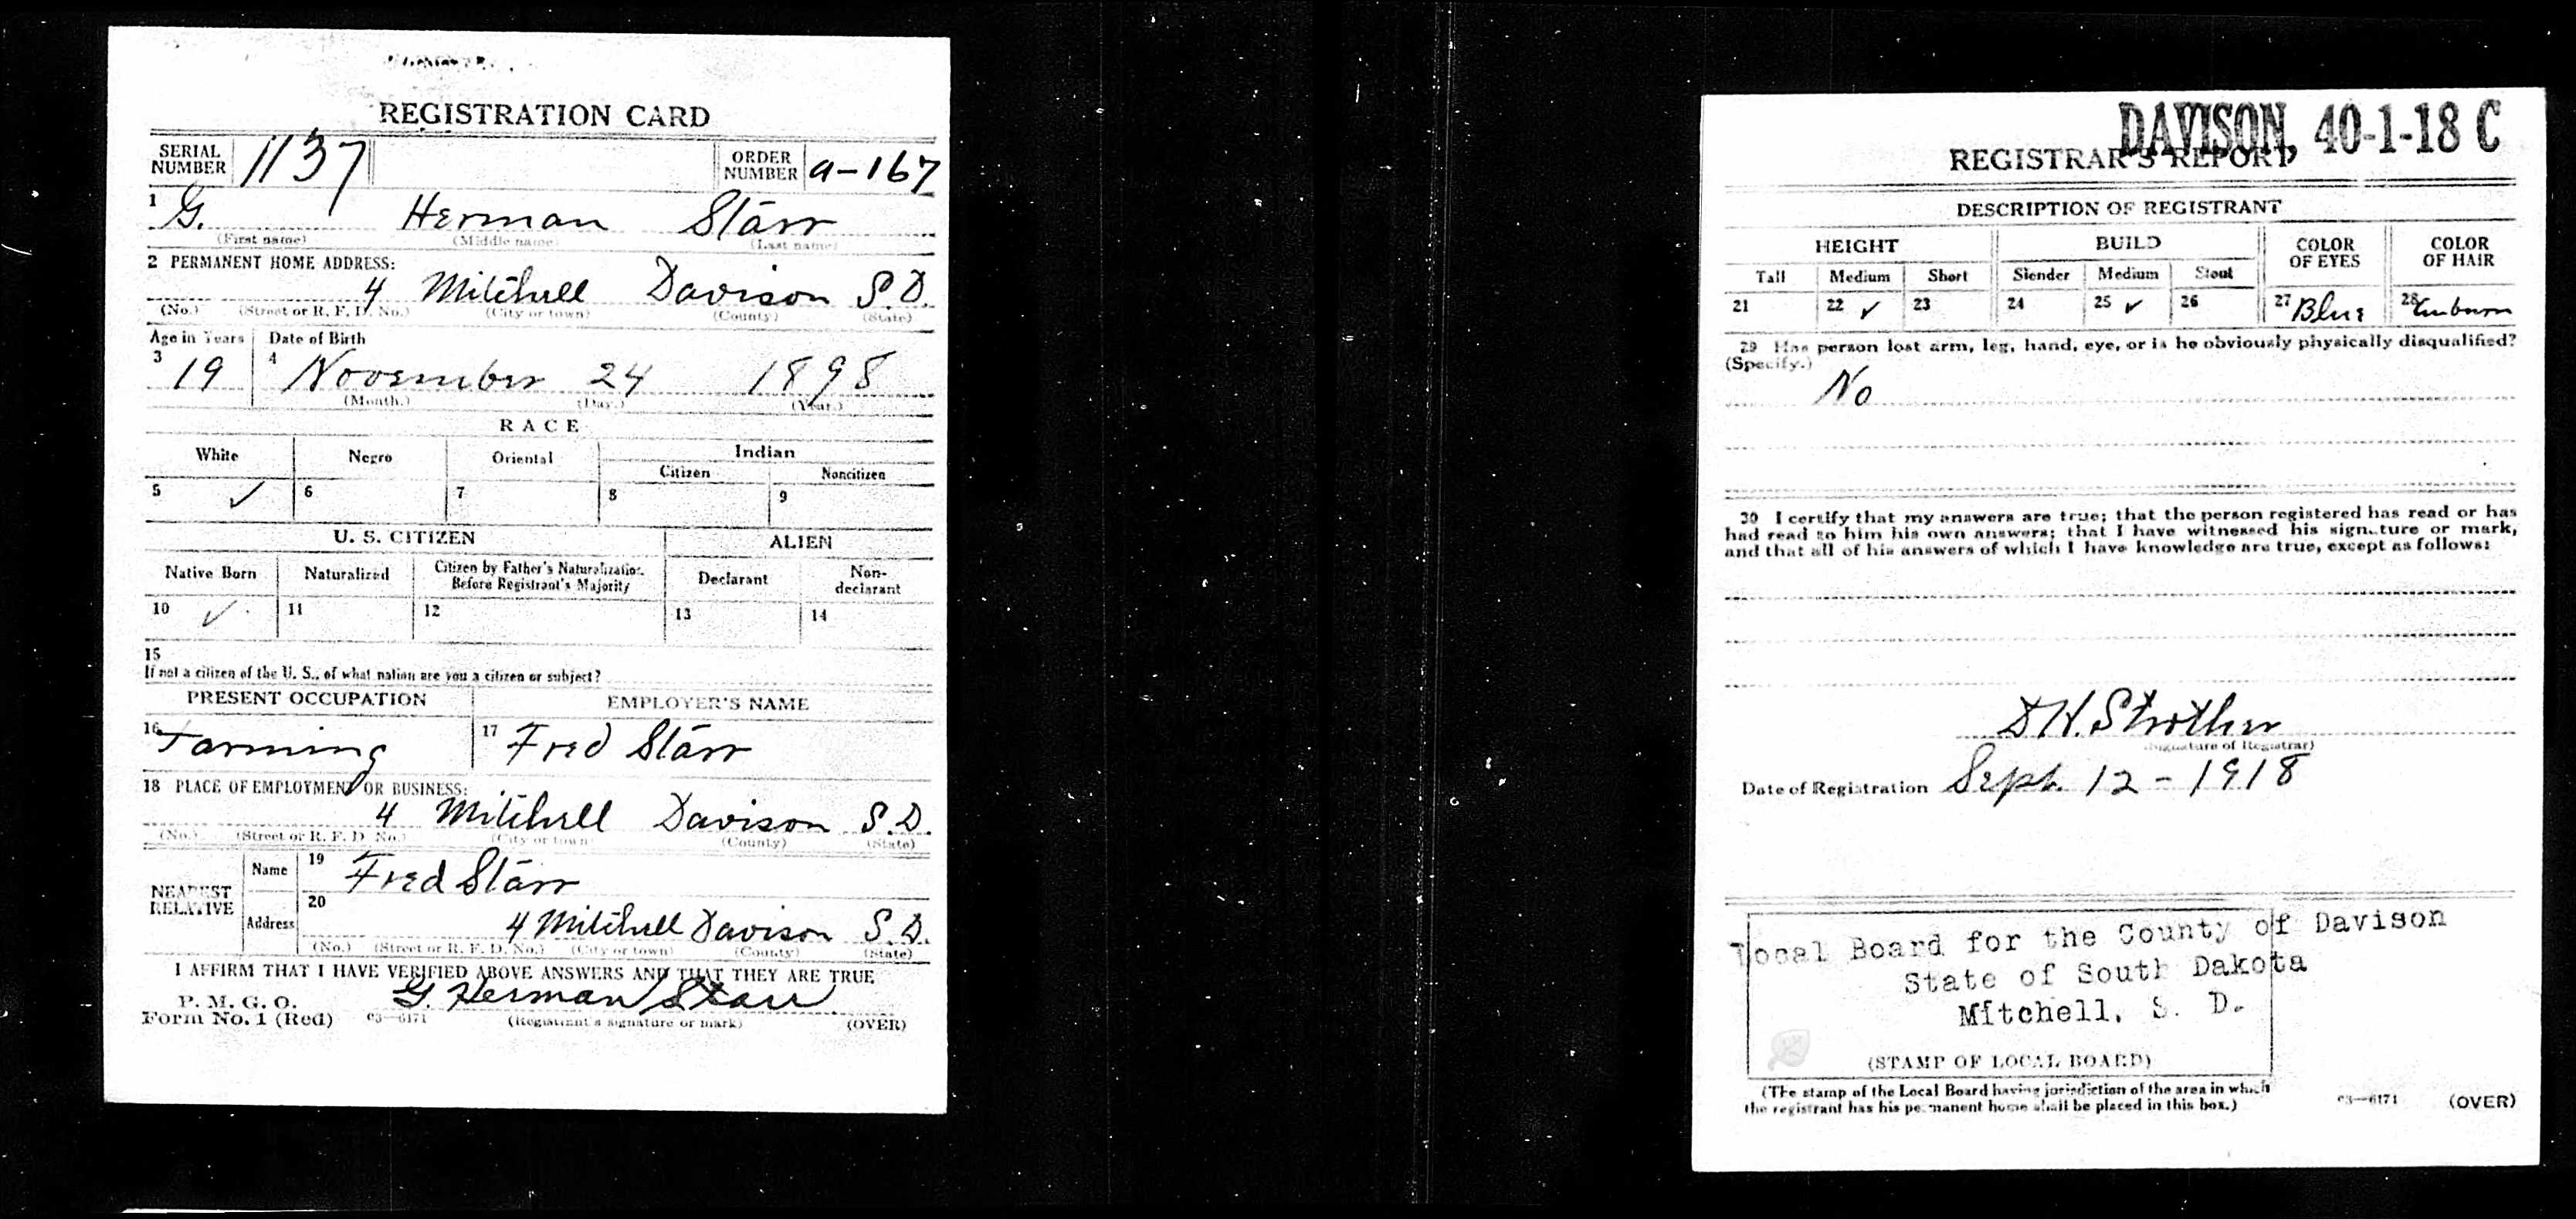 REGISTRATION CARD
SERIAL NUMBER 1137 ORDER NUMBER a-167
1 G. Herman Starr
(First name) (Middle name) (Last name)
2 PERMANENT HOME ADDRESS:
4 Mitchell Davison S.D.
(No.) (Street or R. F. D. No.) (City or town) (County) (State)
Age in Years Date of Birth
3 19 4 November 24 1898
(Month.) (Day.) (Year.)
RACE
White Negro Oriental Indian
Citizen Noncitizen
5 ✓ 6 7 8 9
U. S. CITIZEN ALIEN
Native Born Naturalized Citizen by Father's Naturalization Before Registrant's Majority Declarant Non-declarant
10 ✓ 11 12 13 14
15
If not a citizen of the U. S., of what nation are you a citizen or subject?
PRESENT OCCUPATION EMPLOYER'S NAME
16 Farming 17 Fred Starr
18 PLACE OF EMPLOYMENT OR BUSINESS:
4 Mitchell Davison S.D.
(No.) (Street or R. F. D. No.) (City or town) (County) (State)
NEAREST RELATIVE
Name 19 Fred Starr
Address 20 4 Mitchell Davison S.D.
(No.) (Street or R. F. D. No.) (City or town) (County) (State)
I AFFIRM THAT I HAVE VERIFIED ABOVE ANSWERS AND THAT THEY ARE TRUE
P. M. G. O. G. Herman Starr
Form No. 1 (Red) c3—6171 (Registrant's signature or mark) (OVER)
DAVISON, 40-1-18 C
REGISTRAR'S REPORT
DESCRIPTION OF REGISTRANT
HEIGHT BUILD COLOR OF EYES COLOR OF HAIR
Tall Medium Short Slender Medium Stout
21 22 ✓ 23 24 25 ✓ 26 27 Blue 28
29 Has person lost arm, leg, hand, eye, or is he obviously physically disqualified?
(Specify.)
No
30 I certify that my answers are true; that the person registered has read or has
had read to him his own answers; that I have witnessed his signature or mark,
and that all of his answers of which I have knowledge are true, except as follows:
D H. Strother
(Signature of Registrar)
Date of Registration Sept. 12 - 1918
Local Board for the County of Davison
State of South Dakota
Mitchell, S. D.
(STAMP OF LOCAL BOARD)
(The stamp of the Local Board having jurisdiction of the area in which
the registrant has his permanent home shall be placed in this box.)
c3—6171 (OVER)